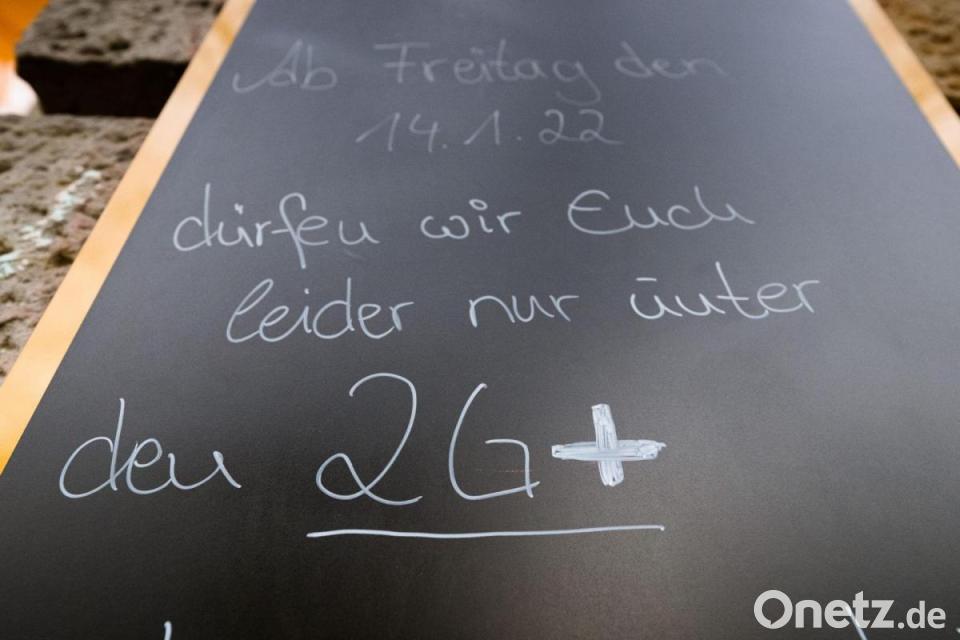 Ab Freitag den
14.1.22
dürfen wir Euch
leider nur unter
den 2G+
Onetz.de